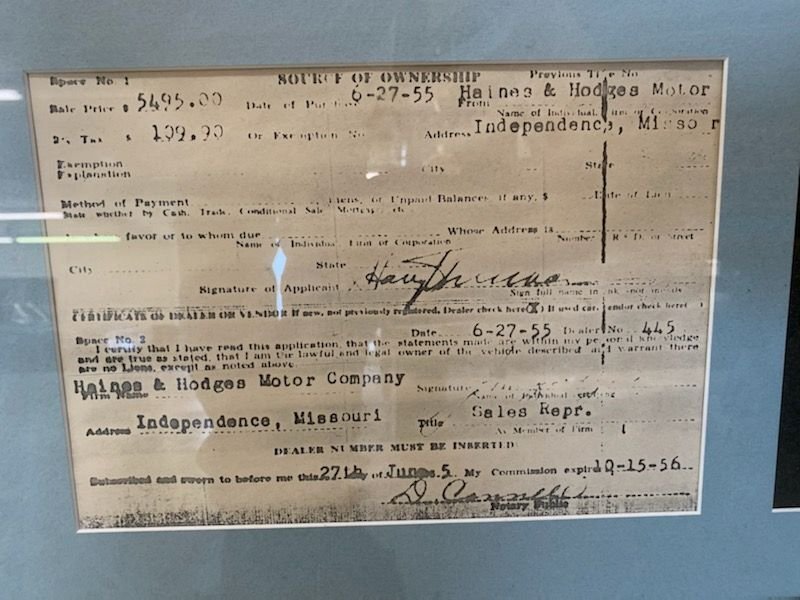 Space No. 1 SOURCE OF OWNERSHIP Previous Title No
Sale Price $ 5495.00 Date of 6-27-55 From Haines & Hodges Motor
Name of Individual, Firm or Corporation
2% Tax $ 109.90 Or Exemption No Address Independence, Missour
Exemption
Explanation City State
Method of Payment Liens, or Unpaid Balances, if any, $ Date of Lien
State whether by Cash, Trade, Conditional Sale Mortgage, etc
favor or to whom due Whose Address is
Name of Individual Firm or Corporation Number R F D. or Street
City State
Signature of Applicant Harry Truman
Sign full name in ink
CERTIFICATE OF DEALER OR VENDOR If new, not previously registered, Dealer check here (X) If used car, vendor check here ( )
Space No. 2 Date 6-27-55 Dealer No. 445
I certify that I have read this application, that the statements made are within my personal knowledge
and are true as stated, that I am the lawful and legal owner of the vehicle described and warrant there
are no Liens, except as noted above.
Haines & Hodges Motor Company Signature
Firm Name Name of Individual
Address Independence, Missouri Title Sales Repr.
As Member of Firm
DEALER NUMBER MUST BE INSERTED
Subscribed and sworn to before me this 27th day of June 5. My Commission expires 10-15-56
Notary Public